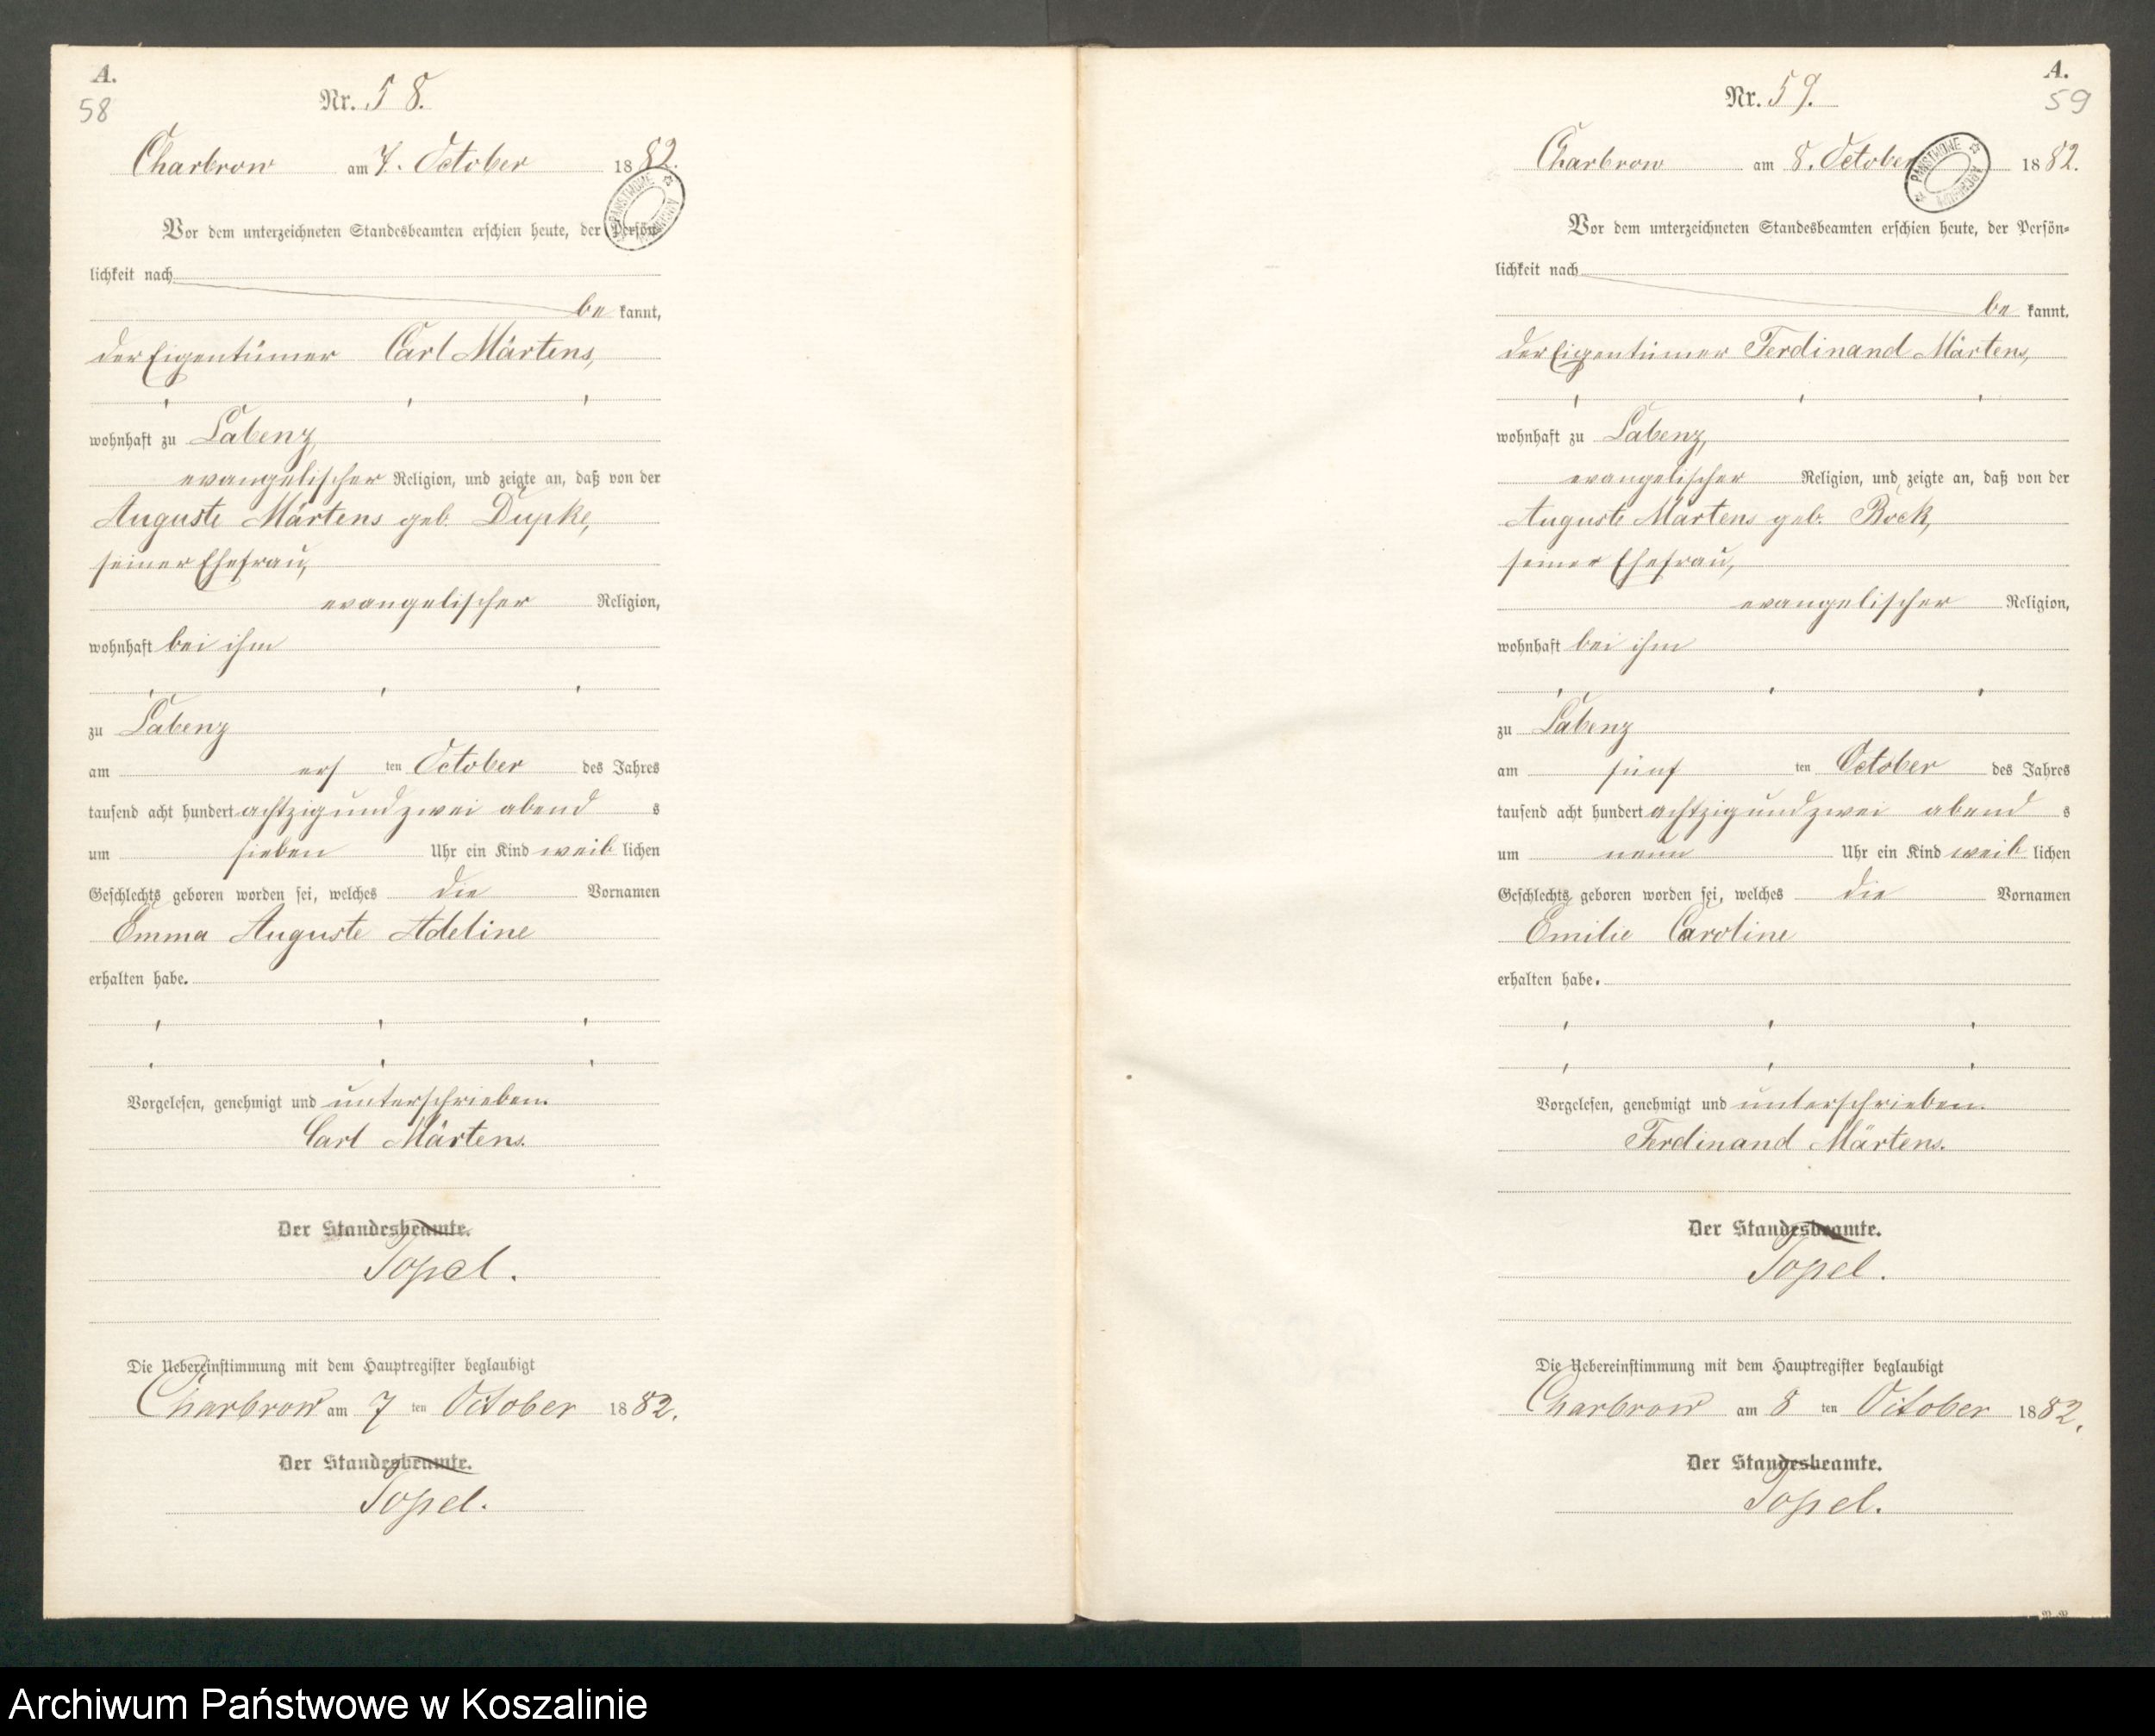 A.
58
Nr. 58.
Charbrow am 7. October 1882.
PAŃSTWOWE ARCHIWUM
Vor dem unterzeichneten Standesbeamten erschien heute, der Persön-
lichkeit nach
be kannt,
der Eigentümer Carl Märtens,
wohnhaft zu Labenz,
evangelischer Religion, und zeigte an, daß von der
Auguste Märtens geb. Dupke,
seiner Ehefrau,
evangelischer Religion,
wohnhaft bei ihm
zu Labenz
am ers ten October des Jahres
tausend acht hundert achtzig und zwei abend s
um sieben Uhr ein Kind weib lichen
Geschlechts geboren worden sei, welches die Vornamen
Emma Auguste Adeline
erhalten habe.
Vorgelesen, genehmigt und unterschrieben.
Carl Märtens.
Der Standesbeamte.
Topel.
Die Uebereinstimmung mit dem Hauptregister beglaubigt
Charbrow am 7 ten October 1882.
Der Standesbeamte.
Topel.
A.
59
Nr. 59.
Charbrow am 8. October 1882.
PAŃSTWOWE ARCHIWUM
Vor dem unterzeichneten Standesbeamten erschien heute, der Persön-
lichkeit nach
be kannt.
der Eigentümer Ferdinand Märtens,
wohnhaft zu Labenz,
evangelischer Religion, und zeigte an, daß von der
Auguste Märtens geb. Rock,
seiner Ehefrau,
evangelischer Religion,
wohnhaft bei ihm
zu Labenz
am fünf ten October des Jahres
tausend acht hundert achtzig und zwei abend s
um neun Uhr ein Kind weib lichen
Geschlechts geboren worden sei, welches die Vornamen
Emilie Caroline
erhalten habe.
Vorgelesen, genehmigt und unterschrieben.
Ferdinand Märtens.
Der Standesbeamte.
Topel.
Die Uebereinstimmung mit dem Hauptregister beglaubigt
Charbrow am 8 ten October 1882.
Der Standesbeamte.
Topel.
Archiwum Państwowe w Koszalinie